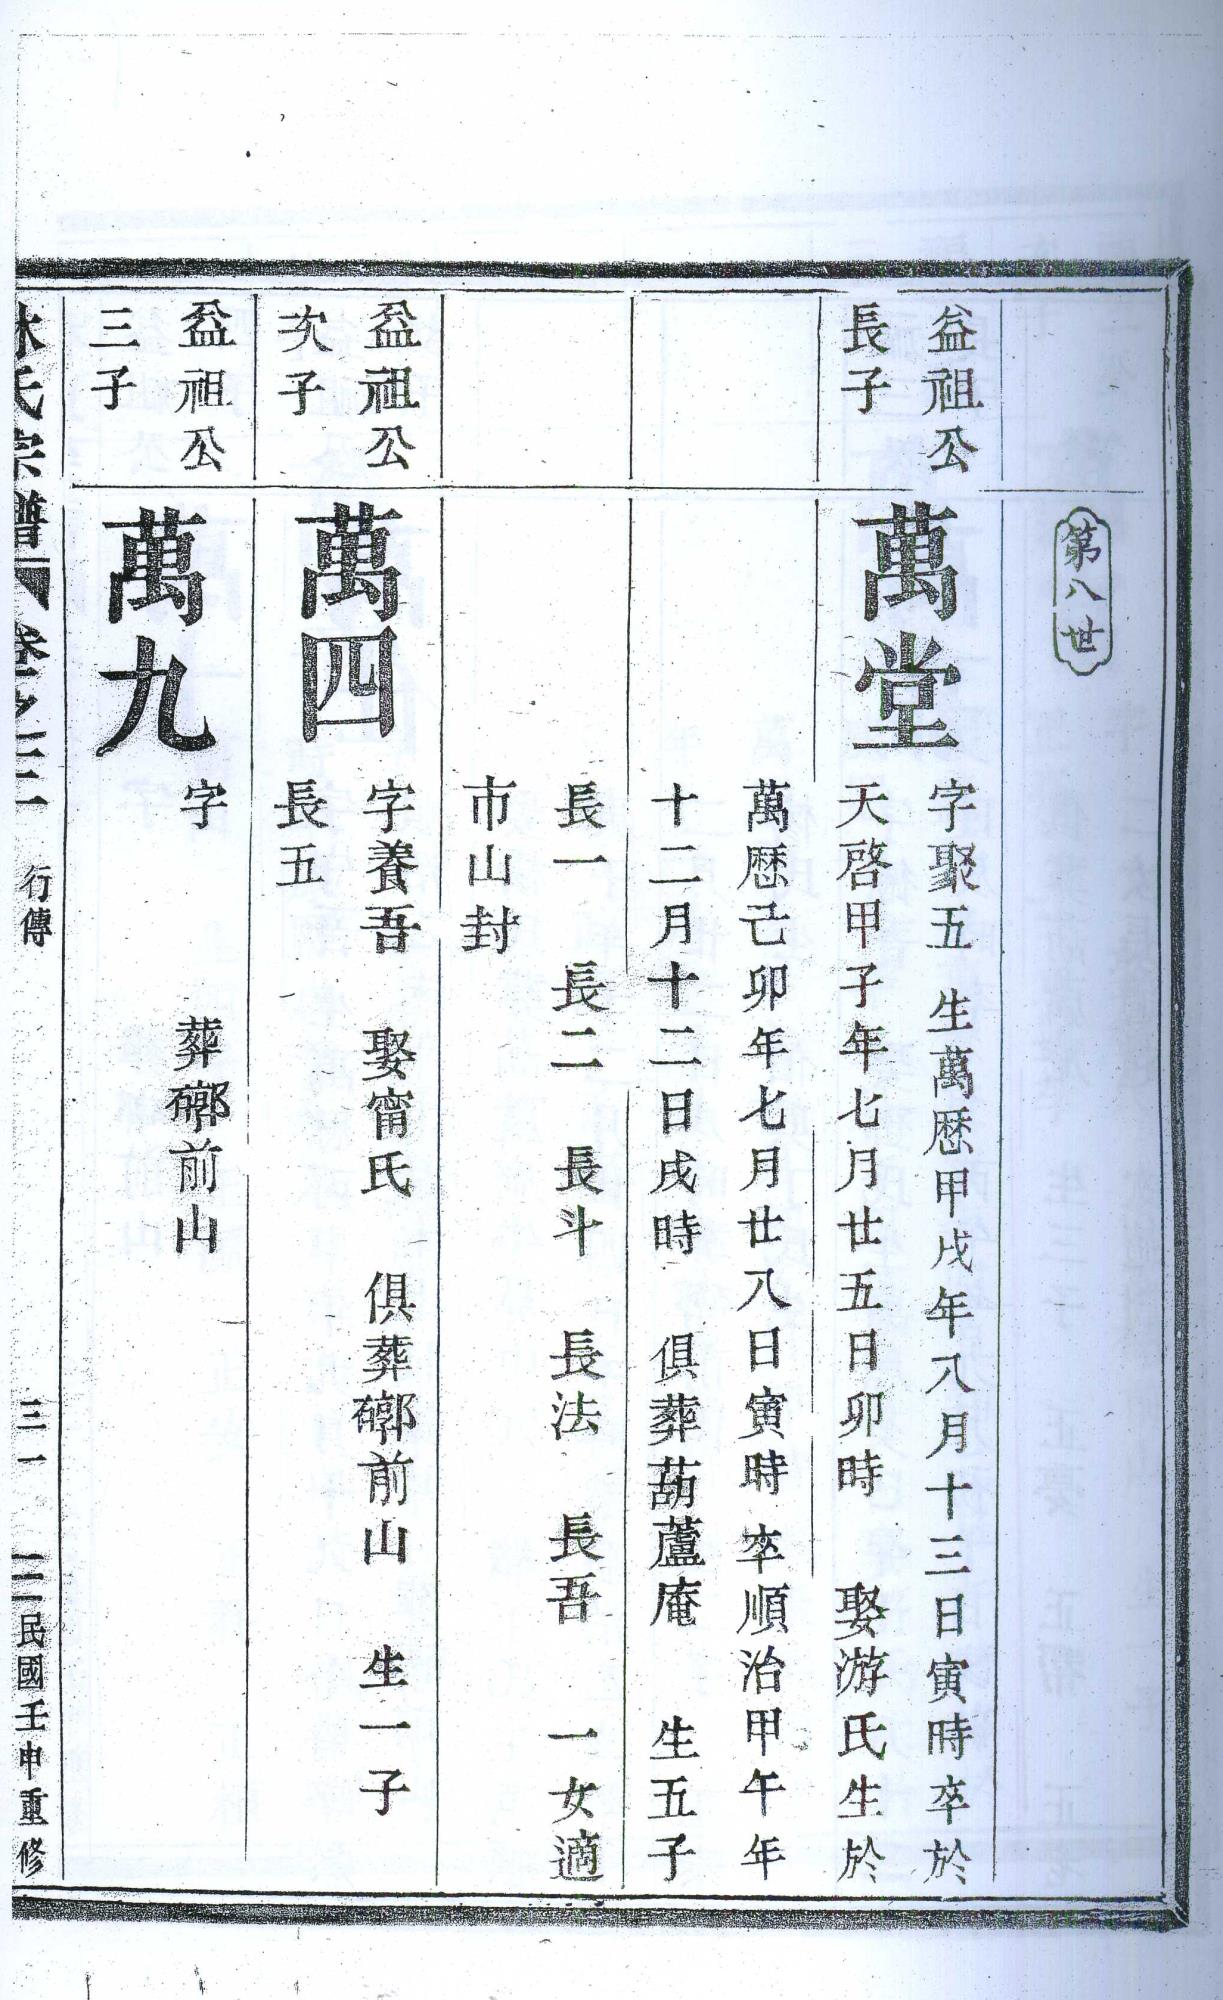 第八世
益祖公
長子
萬堂
字聚五 生萬歷甲戌年八月十三日寅時卒於
天啓甲子年七月廿五日卯時 娶游氏生於
萬歷己卯年七月廿八日寅時卒順治甲午年
十二月十二日戌時 俱葬葫蘆庵 生五子
長一 長二 長斗 長法 長吾 一女適
市山封
益祖公
次子
萬四
字養吾 娶甯氏 俱葬𥕖前山 生一子
長五
益祖公
三子
萬九
字 葬𥕖前山
林氏宗譜 卷之二 行傳 三一 民國壬申重修